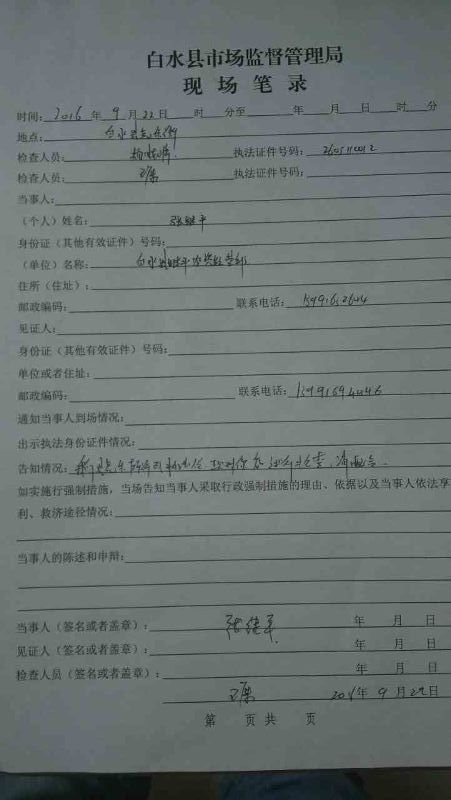 白水县市场监督管理局
现场笔录
时间：2016年9月22日 时 分至 年 月 日 时 分
地点：白水县
检查人员：杨 执法证件号码：
检查人员：王康 执法证件号码：
当事人：
（个人）姓名：张继平
身份证（其他有效证件）号码：
（单位）名称：白水县继平农资经营部
住所（住址）：
邮政编码： 联系电话：
见证人：
身份证（其他有效证件）号码：
单位或者住址：
邮政编码： 联系电话：13991694446
通知当事人到场情况：
出示执法身份证件情况：
告知情况：我 请配合.
如实施行强制措施，当场告知当事人采取行政强制措施的理由、依据以及当事人依法享
利、救济途径情况：
当事人的陈述和申辩：
当事人（签名或者盖章）：张继平 年 月 日
见证人（签名或者盖章）： 年 月 日
检查人员（签名或者盖章）： 年 月 日
王康 2016年9月22日
第 页共 页